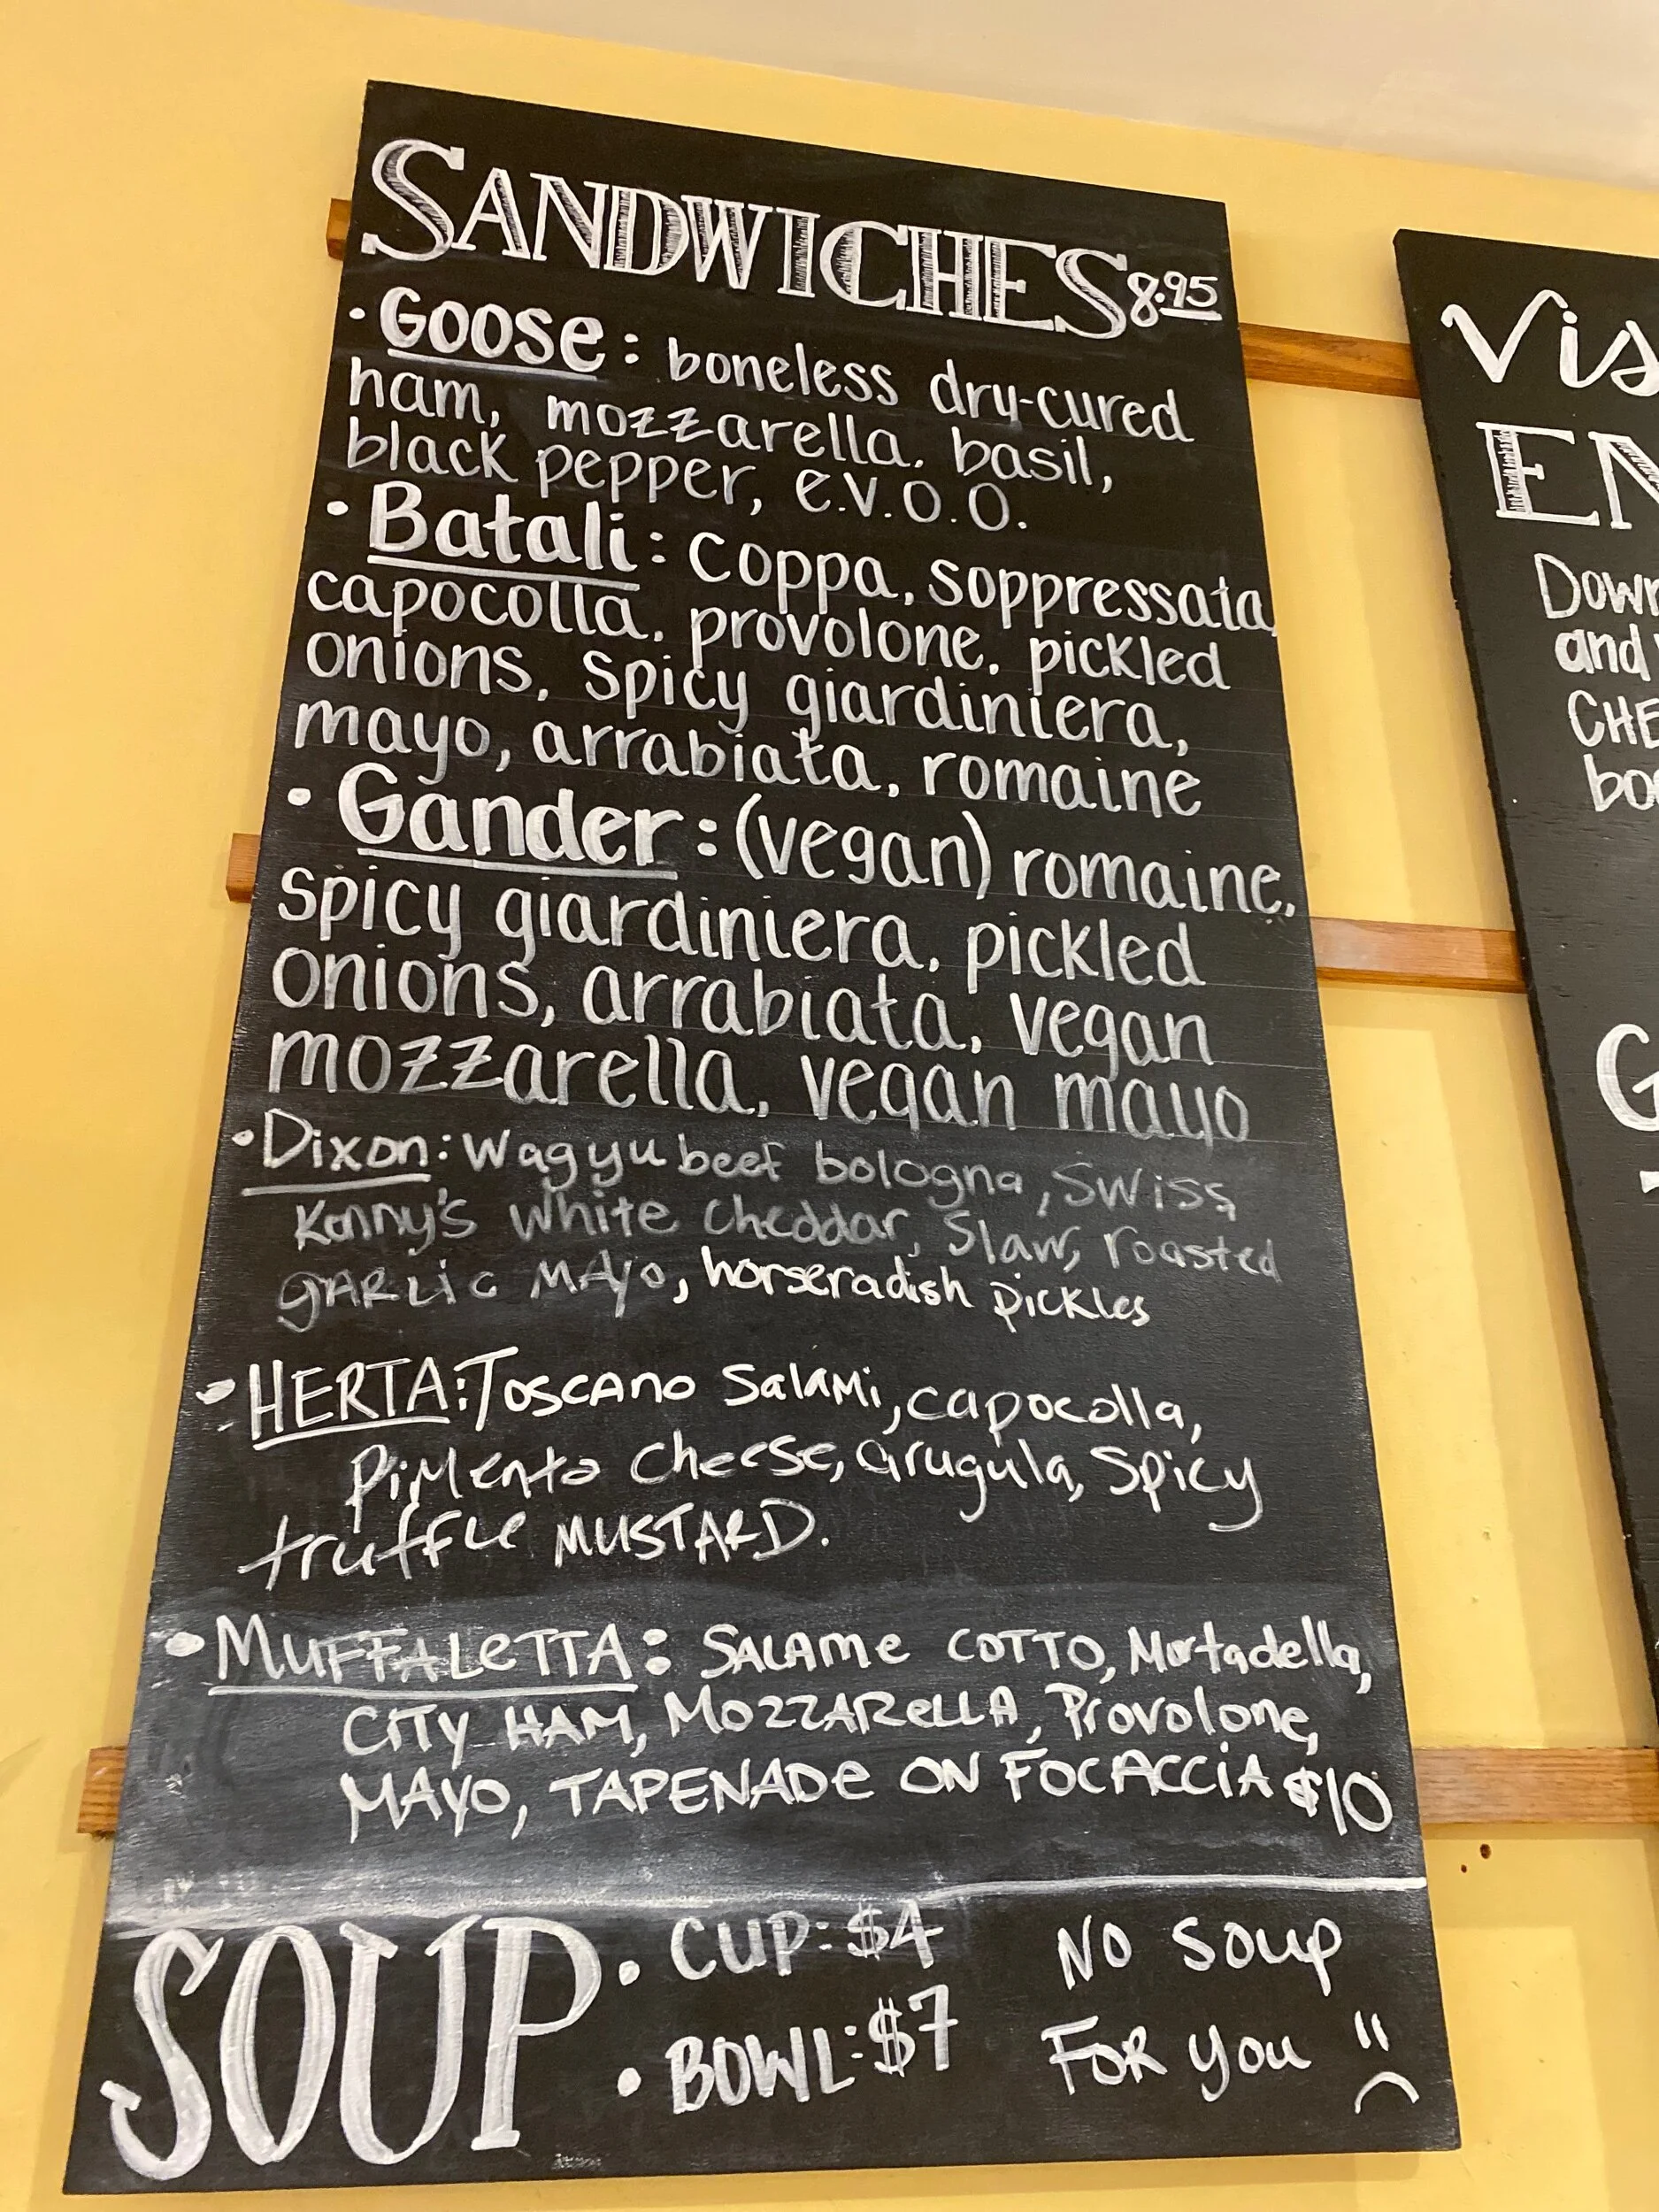 SANDWICHES 8.95
• Goose: boneless dry-cured
ham, mozzarella, basil,
black pepper, e.v.o.o.
• Batali: coppa, soppressata,
capocolla, provolone, pickled
onions, spicy giardiniera,
mayo, arrabiata, romaine
• Gander: (vegan) romaine,
spicy giardiniera, pickled
onions, arrabiata, vegan
mozzarella, vegan mayo
• Dixon: Wagyu beef bologna, Swiss,
Kenny's white cheddar, Slaw, roasted
gARLic MAyo, horseradish pickles
• HERTA: Toscano Salami, capocolla,
PiMento Cheese, arugula, Spicy
truffle MUSTARD.
• MUFFALeTTA: SALAMe COTTO, Mortadella,
CiTy HAM, MOZZAReLLA, Provolone,
MAyo, TAPENADe ON FOCACCiA $10
SOUP • CUP: $4
• BOWL: $7
NO Soup
FOR you
Vis
EN
Down
and
CHE
bo
G